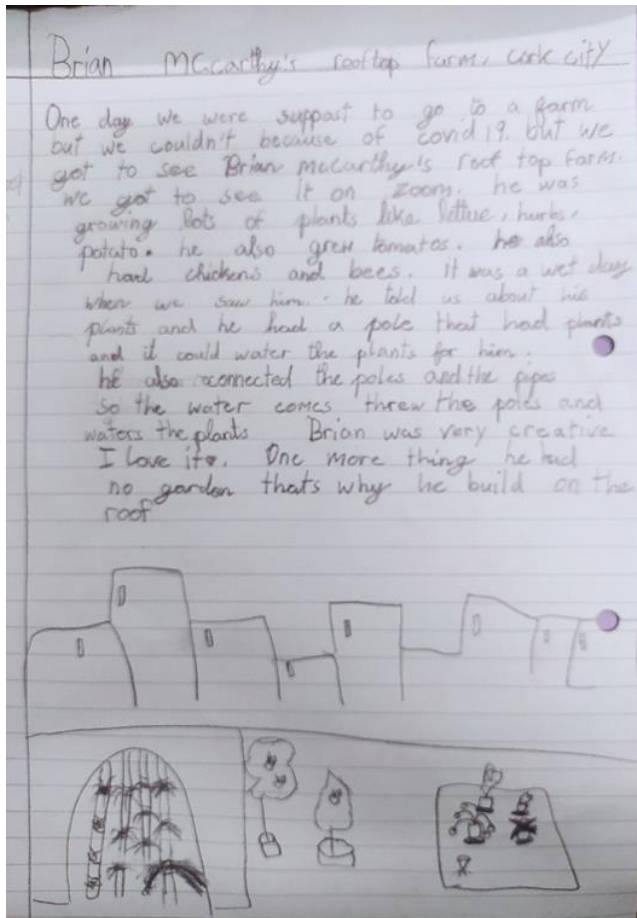 Brian McCarthy's rooftop farm, cork city
One day we were suppast to go to a farm
but we couldn't because of covid 19. but we
got to see Brian mccarthy's roof top farm.
we got to see it on zoom. he was
growing lots of plants like lettue, hurbs,
potato. he also grew tomatos. he also
had chickens and bees. It was a wet day
when we saw him. he told us about his
plants and he had a pole that had plants
and it could water the plants for him.
he also connected the poles and the pipes
so the water comes threw the poles and
waters the plants Brian was very creative
I love it. One more thing he had
no garden thats why he build on the
roof